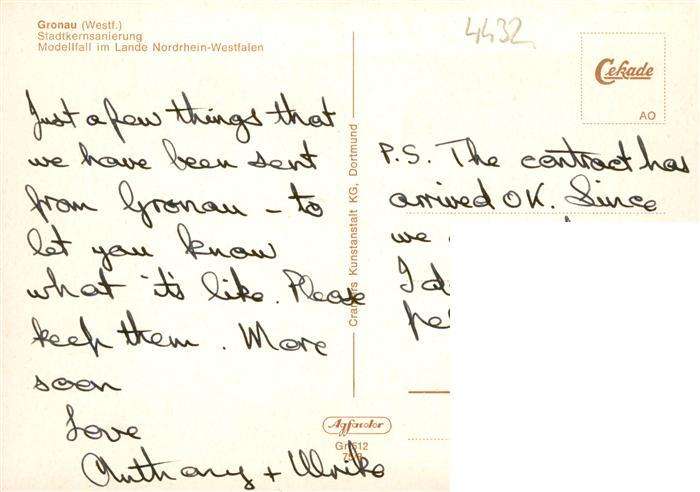 Gronau (Westf.)
Stadtkernsanierung
Modellfall im Lande Nordrhein-Westfalen
4432
Cekade
AO
Just a few things that
we have been sent
from Gronau – to
let you know
what it's like. Please
keep them. More
soon
Love
Anthony + Ulrike
Kunstanstalt KG, Dortmund
P.S. The contract has
arrived OK. Since
we
I
Agfacolor